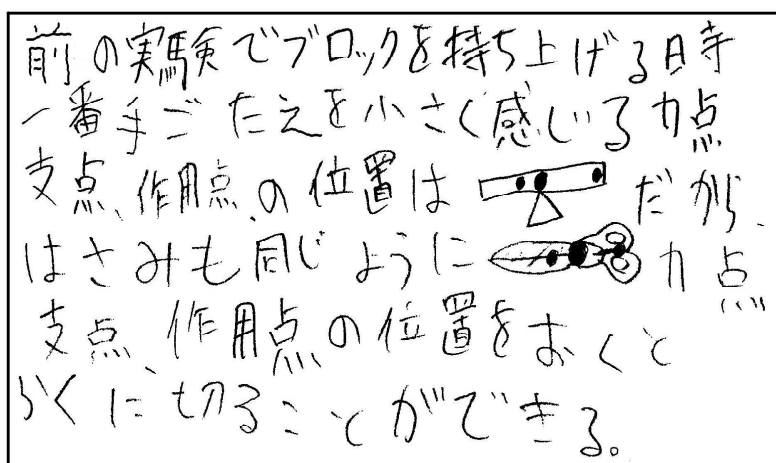 前の実験でブロックを持ち上げる時
一番手ごたえを小さく感じる力点
支点、作用点、の位置は だから、
はさみも同じように 力点
支点、作用点の位置をおくと
らくに切ることができる。